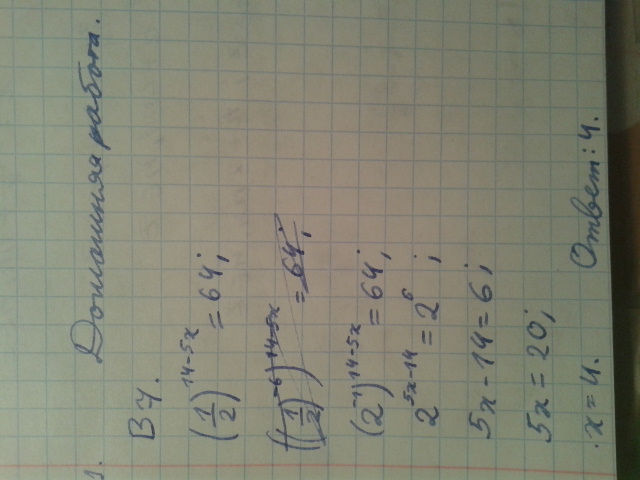 Домашняя работа.
1.
B7.
(1/2)^(14-5x) = 64;
((1/2)^(-6))^(14-5x) = 64;
(2^(-1))^(14-5x) = 64;
2^(5x-14) = 2^6;
5x-14=6;
5x=20;
x=4. Ответ: 4.